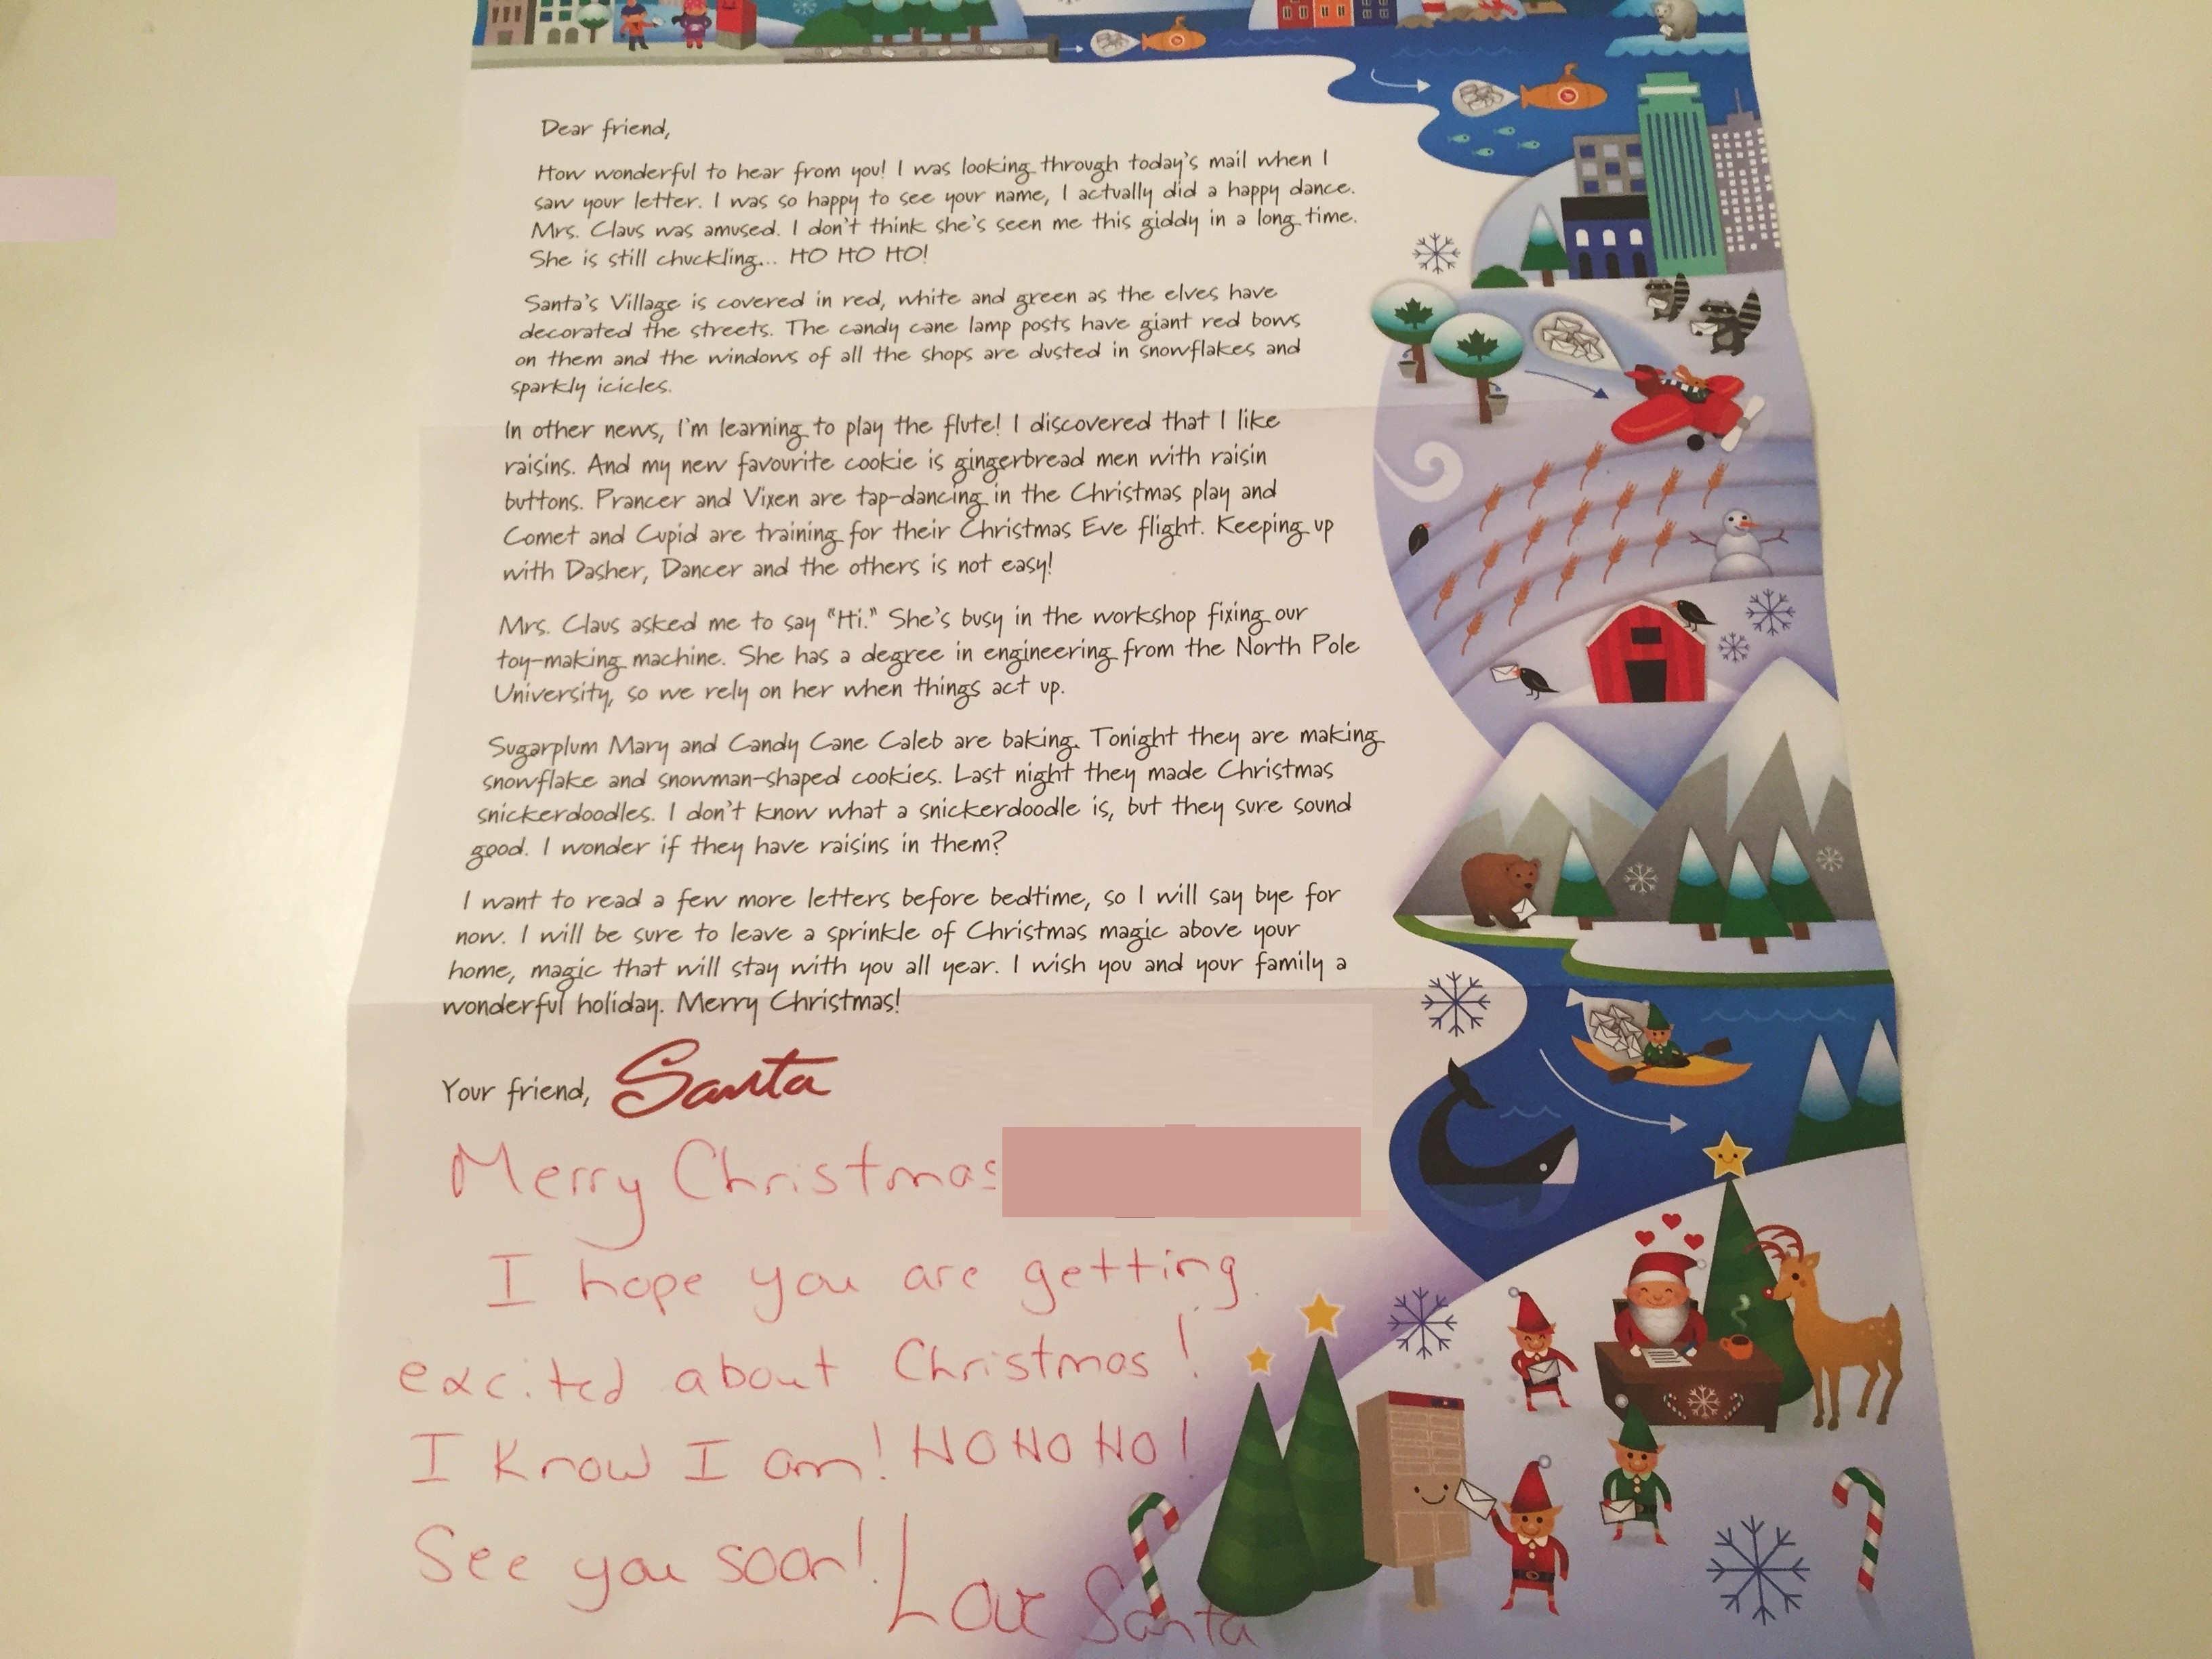 Dear friend,
How wonderful to hear from you! I was looking through today's mail when I
saw your letter. I was so happy to see your name, I actually did a happy dance.
Mrs. Claus was amused. I don't think she's seen me this giddy in a long time.
She is still chuckling... HO HO HO!
Santa's Village is covered in red, white and green as the elves have
decorated the streets. The candy cane lamp posts have giant red bows
on them and the windows of all the shops are dusted in snowflakes and
sparkly icicles.
In other news, I'm learning to play the flute! I discovered that I like
raisins. And my new favourite cookie is gingerbread men with raisin
buttons. Prancer and Vixen are tap-dancing in the Christmas play and
Comet and Cupid are training for their Christmas Eve flight. Keeping up
with Dasher, Dancer and the others is not easy!
Mrs. Claus asked me to say "Hi." She's busy in the workshop fixing our
toy-making machine. She has a degree in engineering from the North Pole
University, so we rely on her when things act up.
Sugarplum Mary and Candy Cane Caleb are baking. Tonight they are making
snowflake and snowman-shaped cookies. Last night they made Christmas
snickerdoodles. I don't know what a snickerdoodle is, but they sure sound
good. I wonder if they have raisins in them?
I want to read a few more letters before bedtime, so I will say bye for
now. I will be sure to leave a sprinkle of Christmas magic above your
home, magic that will stay with you all year. I wish you and your family a
wonderful holiday. Merry Christmas!
Your friend, Santa
Merry Christmas
I hope you are getting
excited about Christmas!
I know I am! HO HO HO!
See you soon! Love Santa